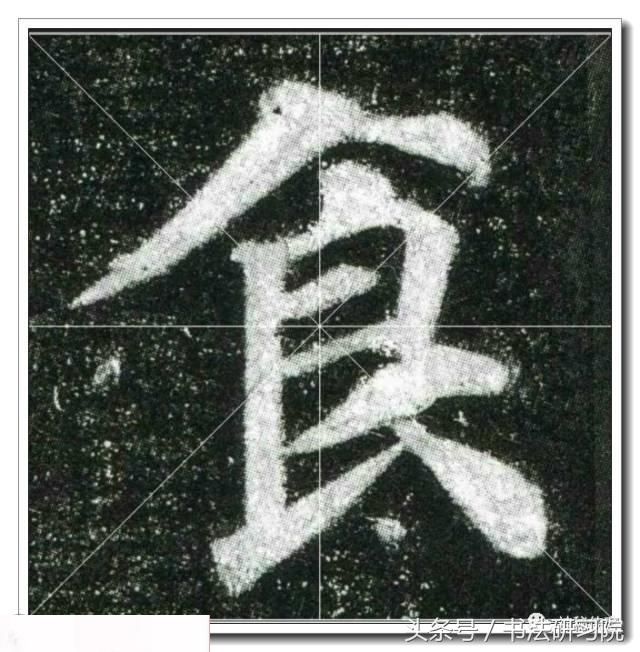 食
头条号 / 书法研习院